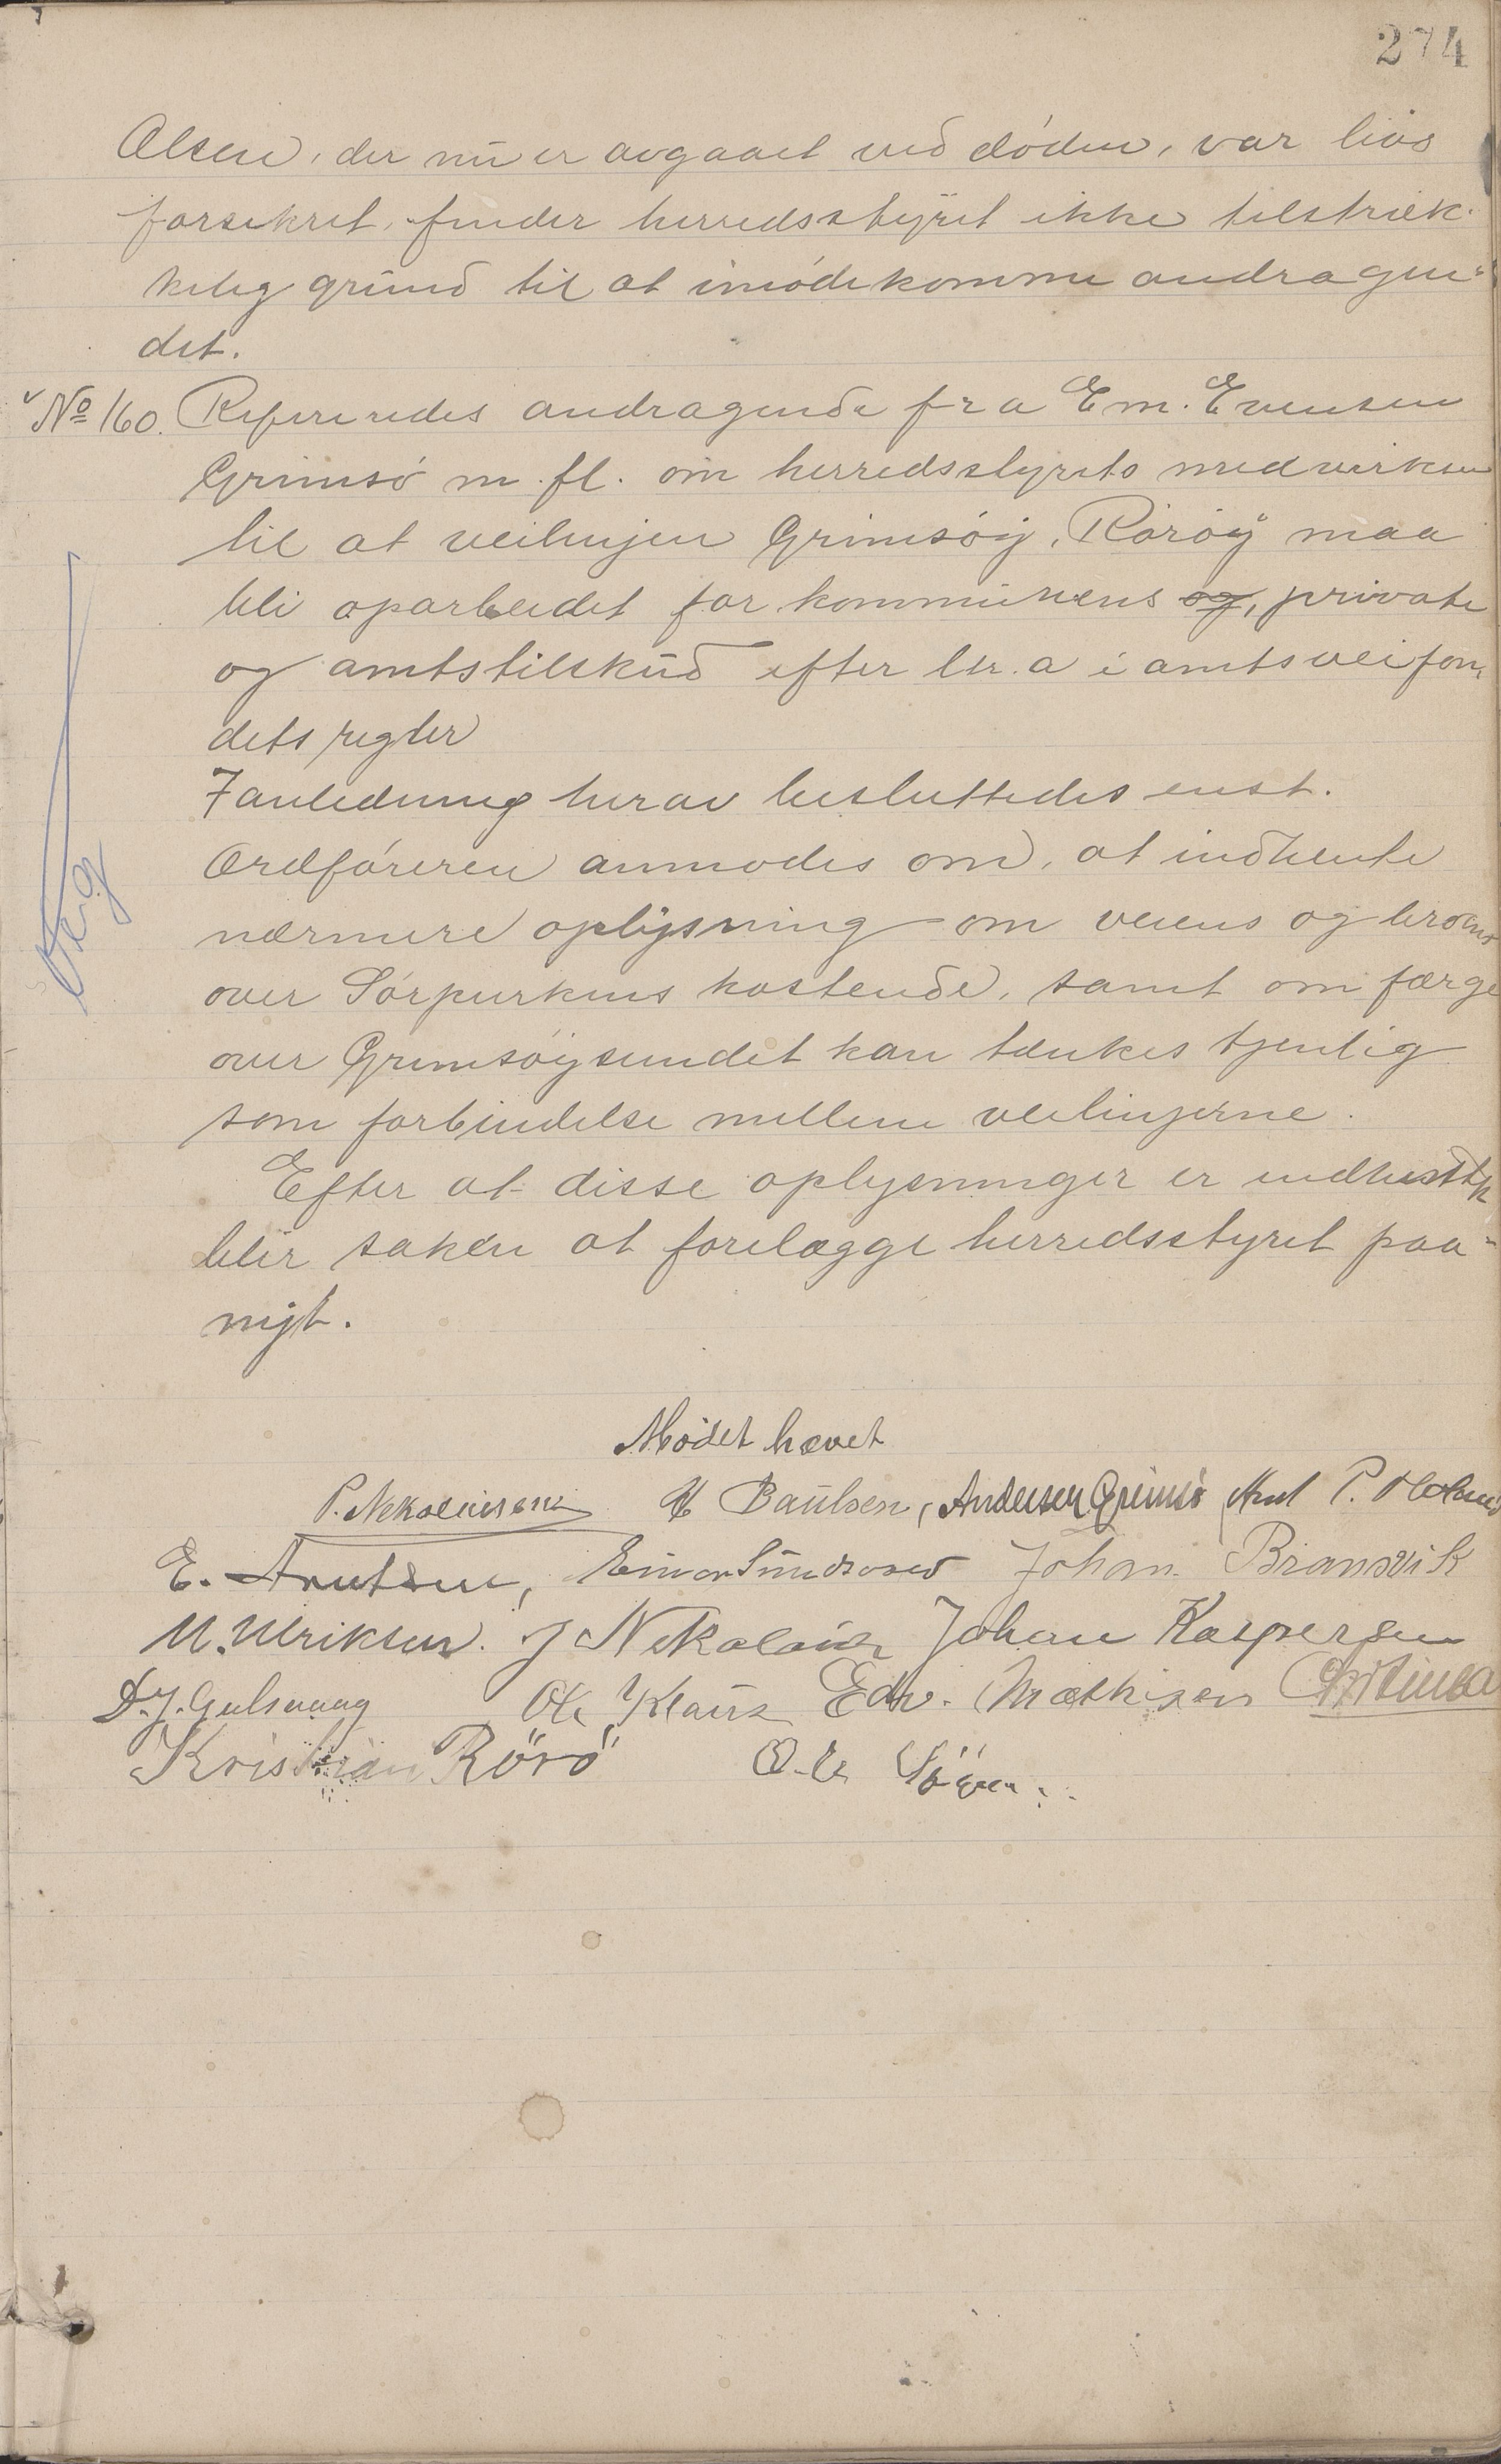 274
Olsen, der nu er avgaaet ved døden, var livs
forsikret, finder herredsstyret ikke tilstræk-
kelig grund til at imødekomme andragen-
det.
No 160. Refereredes andragende fra Em. Evensen
Grimsø m. fl. om herredsstyrets medvirken
til at veilinjen Grimsøy, Rörøy maa
bli oparbeidet for kommunens og, private
og amtstilskud efter ltr. a i amtsveifon-
dets regler
I anledning herav besluttedes enst.
Ordføreren anmodes om, at indhente
nærmere oplysning om veiens og broens
over Sørpurkens kostende, samt om færge
over Grimsøysundet kan tænkes tjenlig
som forbindelse mellem veilinjerne.
Efter at disse oplysninger er indhentet
blir saken at forelægge herredsstyret paa-
nyt.
Veg
Mødet hævet
P. Nekolaisen H Paulsen, Andersen Grimsø Knut P.
E. Arntsen, Einar Johan Bransvik
M. Ulriksen. J Nekolaisen Johan Kaspersen
D. J. Gulsvaag Ole Klaus Edv. Mathisen
Kristian Rörö Ole